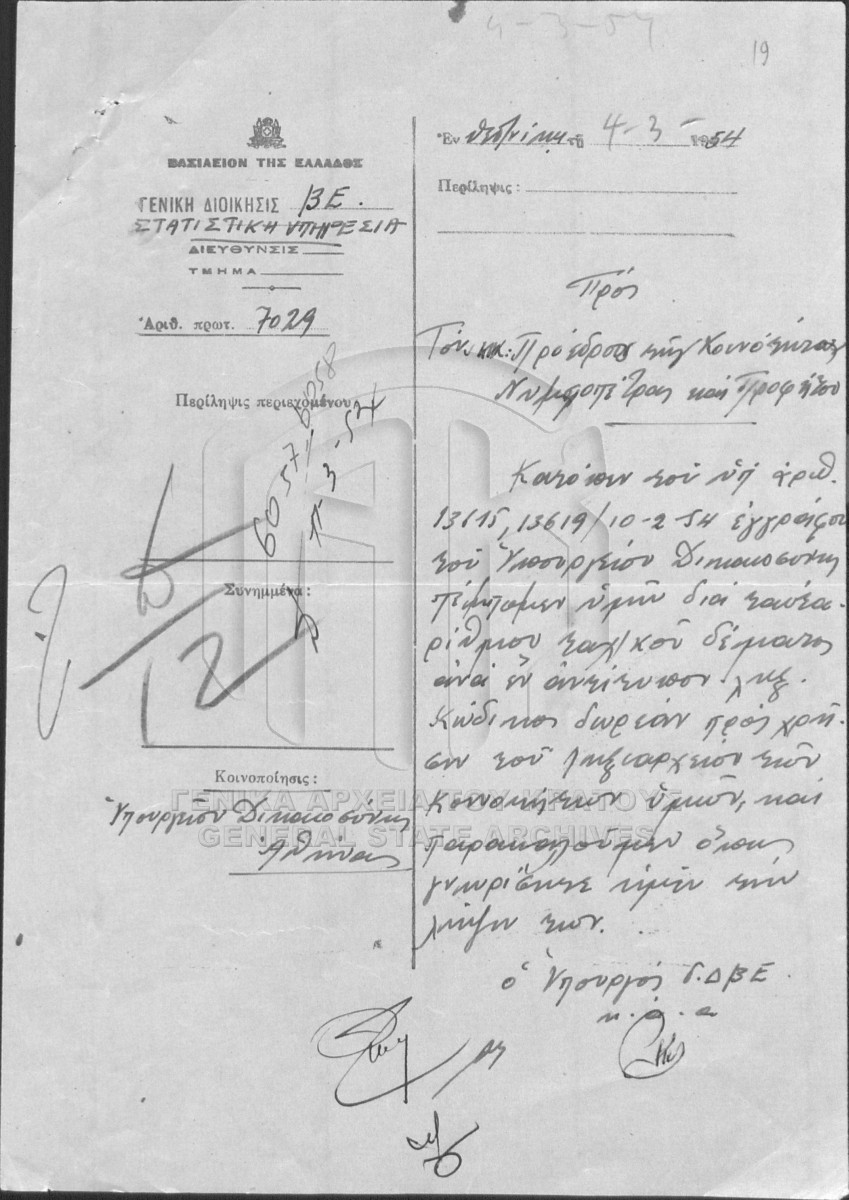 4-3-54
19
ΒΑΣΙΛΕΙΟΝ ΤΗΣ ΕΛΛΑΔΟΣ
ΓΕΝΙΚΗ ΔΙΟΙΚΗΣΙΣ ΒΕ.
ΣΤΑΤΙΣΤΙΚΗ ΥΠΗΡΕΣΙΑ
ΔΙΕΥΘΥΝΣΙΣ
ΤΜΗΜΑ
Ἀριθ. πρωτ. 7029
Περίληψις περιεχομένου
60571 6058
11-3-54
Συνημμένα:
Κοινοποίησις:
Ὑπουργεῖον Δικαιοσύνης
Ἀθήνας
Ἐν Θεσ/νίκῃ τῇ 4-3-1954
Περίληψις:
Πρός
Τούς κκ. Προέδρους τῆς Κοινότητος
Νυμφοπέτρας καί Προφήτου
Κατόπιν τοῦ ὑπ' ἀριθ.
13615, 13619/10-2-54 ἐγγράφου
τοῦ Ὑπουργείου Δικαιοσύνης
πέμπομεν ὑμῖν διά ταυτα-
ρίθμου ταχ/κοῦ δέματος
ἀνά ἕν ἀντίτυπον ληξ.
Κώδικος δωρεάν πρός χρῆ-
σιν τοῦ ληξιαρχείου τῶν
Κοινοτήτων ὑμῶν, καί
παρακαλοῦμεν ὅπως
γνωρίσητε ἡμῖν τήν
λῆψιν των.
ὁ Ὑπουργός Γ.Δ.Β.Ε.
κ.ἀ.α
ΓΕΝΙΚΑ ΑΡΧΕΙΑ ΤΟΥ ΚΡΑΤΟΥΣ
GENERAL STATE ARCHIVES